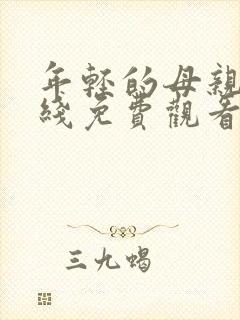 年轻的母亲
綫免費觀看
三九蝎